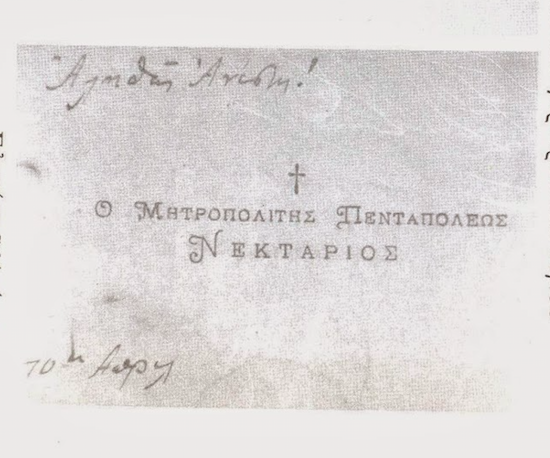 Ἀληθῶς Ἀνέστη!
†
Ο ΜΗΤΡΟΠΟΛΙΤΗΣ ΠΕΝΤΑΠΟΛΕΩΣ
ΝΕΚΤΑΡΙΟΣ
10η Απρι